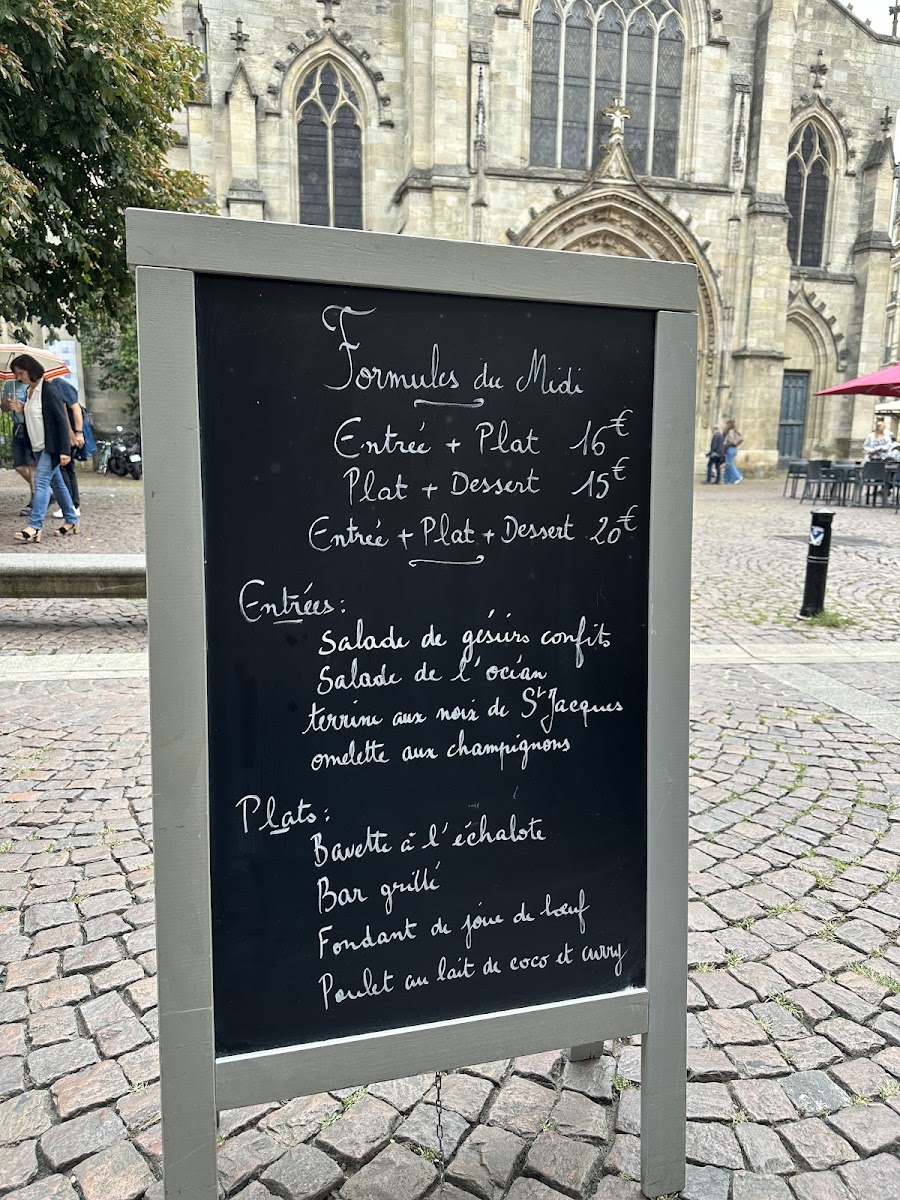 Formules du Midi
Entrée + Plat 16€
Plat + Dessert 15€
Entrée + Plat + Dessert 20€
Entrées :
Salade de gésiers confits
Salade de l'océan
terrine aux noix de St Jacques
omelette aux champignons
Plats :
Bavette à l'échalote
Bar grillé
Fondant de joue de bœuf
Poulet au lait de coco et curry